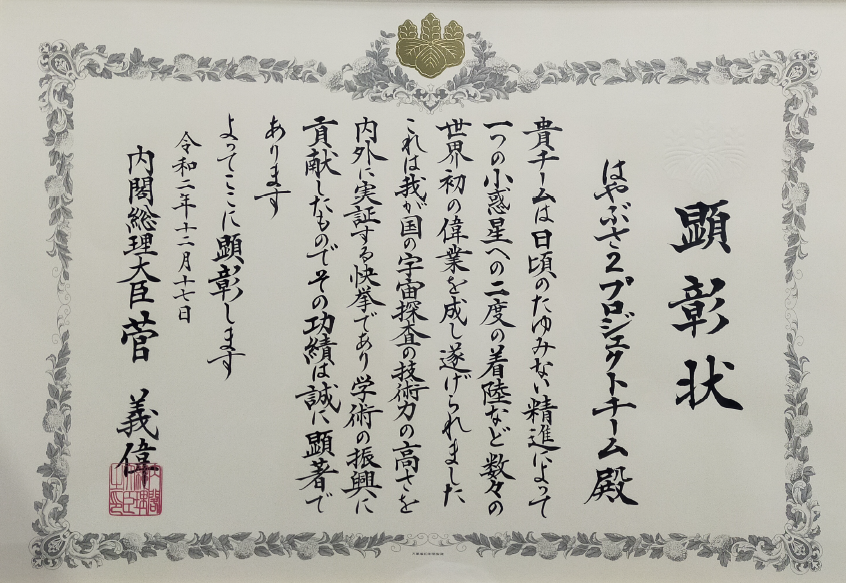 顕彰状
はやぶさ2プロジェクトチーム殿
貴チームは日頃のたゆみない精進によって
一つの小惑星への二度の着陸など数々の
世界初の偉業を成し遂げられました
これは我が国の宇宙探査の技術力の高さを
内外に実証する快挙であり学術の振興に
貢献したものでその功績は誠に顕著で
あります
よってここに顕彰します
令和二年十二月十七日
内閣総理大臣 菅 義偉